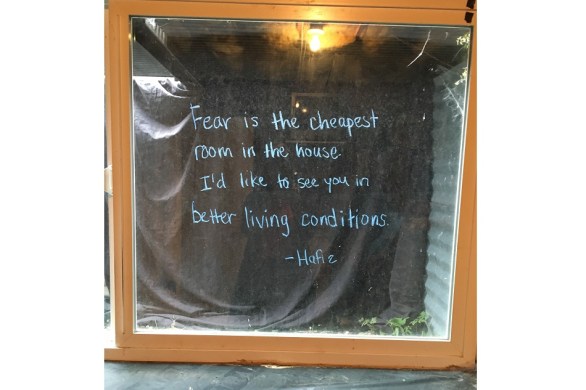 Fear is the cheapest
room in the house.
I'd like to see you in
better living conditions.
-Hafiz